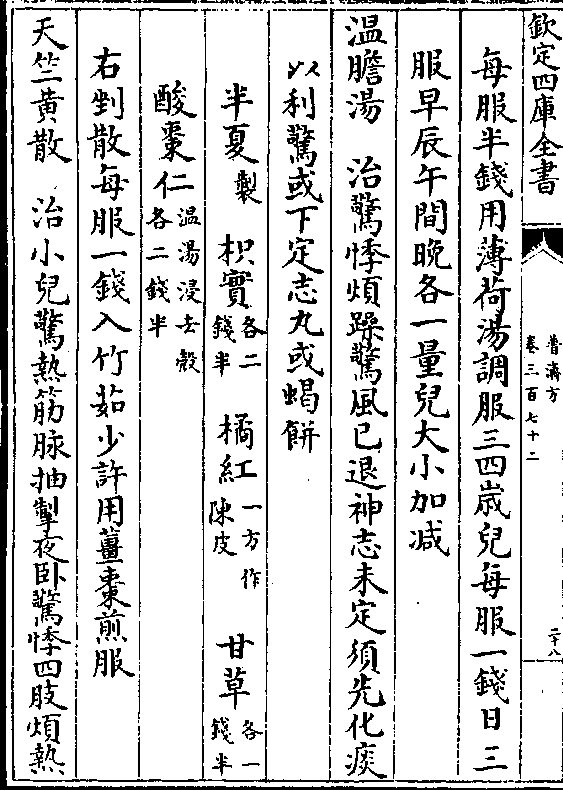 欽定四庫全書
普濟方
卷三百七十二
二十八
每服半錢用薄荷湯調服三四歳兒每服一錢日三
服早辰午間晚各一量兒大小加减
温膽湯 治驚悸煩躁驚風已退神志未定須先化痰
以利驚或下定志丸或蝎餅
半夏製 枳實各二錢半 橘紅一方作陳皮 甘草各一錢半
酸棗仁温湯浸去殼各二錢半
右剉散每服一錢入竹茹少許用薑棗煎服
天竺黄散 治小兒驚熱筋脉抽掣夜卧驚悸四肢煩熱